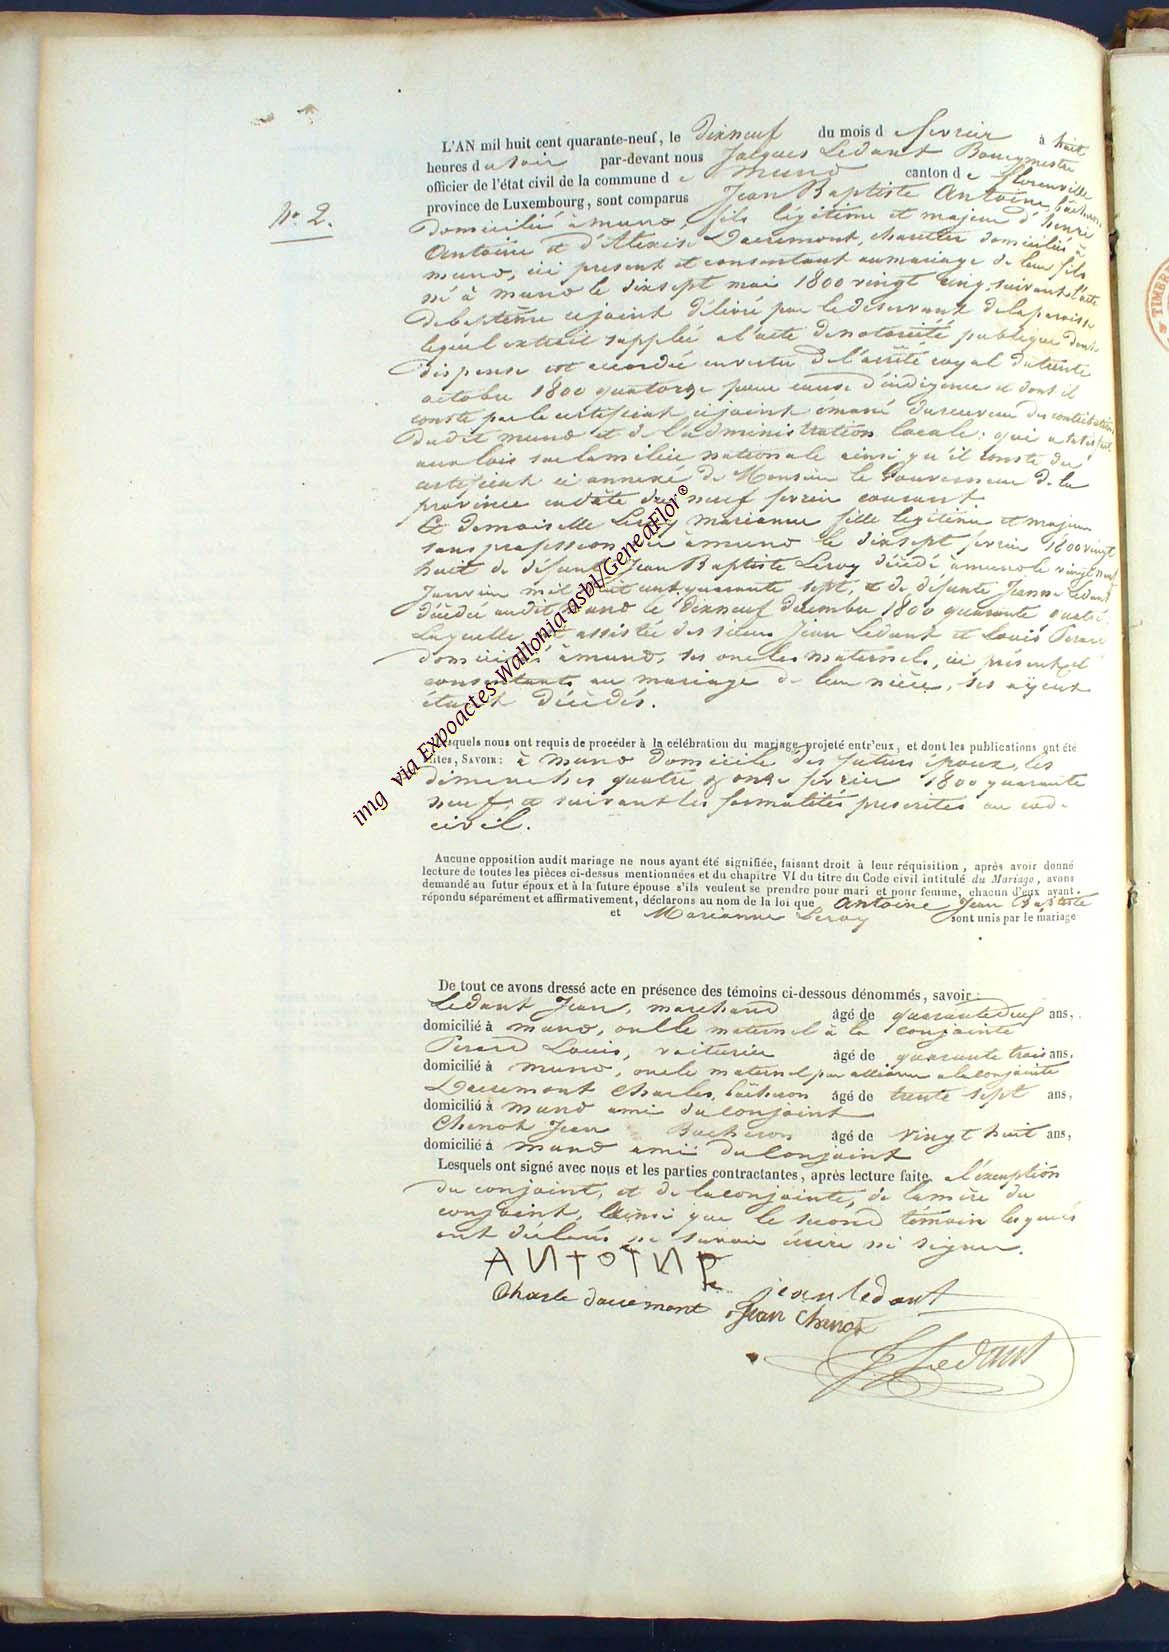 L'AN mil huit cent quarante-neuf, le dixneuf du mois de fevrier à huit
heures du soir par-devant nous Jacques Ledant Bourgmestre
officier de l'état civil de la commune de muno canton de florenville
province de Luxembourg, sont comparus Jean Baptiste Antoine, bûcheron
N° 2.
domicilié à muno, fils légitime et majeur d'henri
Antoine et d'Alexise Dacremont, charetier domiciliés à
muno, ici present et consentant au mariage de leur fils
né à muno le dixsept mai 1800 vingt cinq, suivant l'acte
de baptême ci joint délivré par le desservant de la paroisse
lequel extrait supplée a l'acte de notorieté publique dont
dispense est accordée en vertu de l'arrêté royal du trente
octobre 1800 quatorze pour cause d'indigence et dont il
conste par le certificat ci joint émané du receveur des contributions
dudit muno et de l'administration locale; qui a satisfait
aux lois sur la milice nationale ainsi qu'il conste du
certificat ci annexé de Monsieur le Gouverneur de la
province en date du neuf fevrier courant
Et demoiselle Leroy marianne fille legitime et majeure
sans profession, née à muno le dixsept fevrier 1800 vingt
huit de défunt Jean Baptiste Leroy décédé a muno le vingt neuf
Janvier mil huit cent quarante sept, et de défunte Jeanne Ledant
décédée audit muno le dixneuf decembre 1800 quarante quatre;
Laquelle est assistée des sieurs Jean Ledant et Louis Perard
domiciliés à muno, ses oncles maternels, ici présents et
consentants au mariage de leur nièce, ses ayeux
étant décédés.
Lesquels nous ont requis de procéder à la célébration du mariage projeté entr'eux, et dont les publications ont été
faites, SAVOIR: à muno domicile des futurs époux, les
dimanches quatre & onze fevrier 1800 quarante
neuf, et suivant les formalités prescrites au code
civil.
Aucune opposition audit mariage ne nous ayant été signifiée, faisant droit à leur réquisition, après avoir donné
lecture de toutes les pièces ci-dessus mentionnées et du chapitre VI du titre du Code civil intitulé du Mariage, avons
demandé au futur époux et à la future épouse s'ils veulent se prendre pour mari et pour femme, chacun d'eux ayant
répondu séparément et affirmativement, déclarons au nom de la loi que Antoine Jean Baptiste
et Marianne Leroy sont unis par le mariage
De tout ce avons dressé acte en présence des témoins ci-dessous dénommés, savoir:
Ledant Jean, marchand âgé de ans,
domicilié à muno, oncle maternel à la conjointe
Perard Louis, voiturier âgé de quarante trois ans,
domicilié à muno, oncle maternel par alliance a la conjointe
Dacremont Charles, bûcheron âgé de trente sept ans,
domicilié à muno ami du conjoint
Chenot Jean Bucheron âgé de vingt huit ans,
domicilié à muno ami du conjoint
Lesquels ont signé avec nous et les parties contractantes, après lecture faite, a l'exception
du conjoint, et de la conjointe, de la mère du
conjoint, ainsi que le second témoin lesquels
ont déclaré ne savoir écrire ni signer.
ANTOINE
jean ledant
Charle dacremont Jean Chenot
J Ledant
img via Expoactes Wallonia asbl/GeneaFlor©
TIMBR